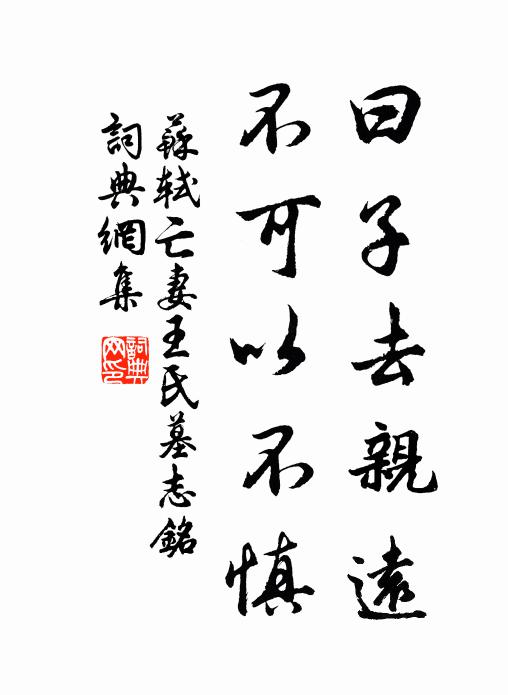 曰子去親遠
不可以不慎
蘇軾亡妻王氏墓志銘
詞典網集
詞典網印